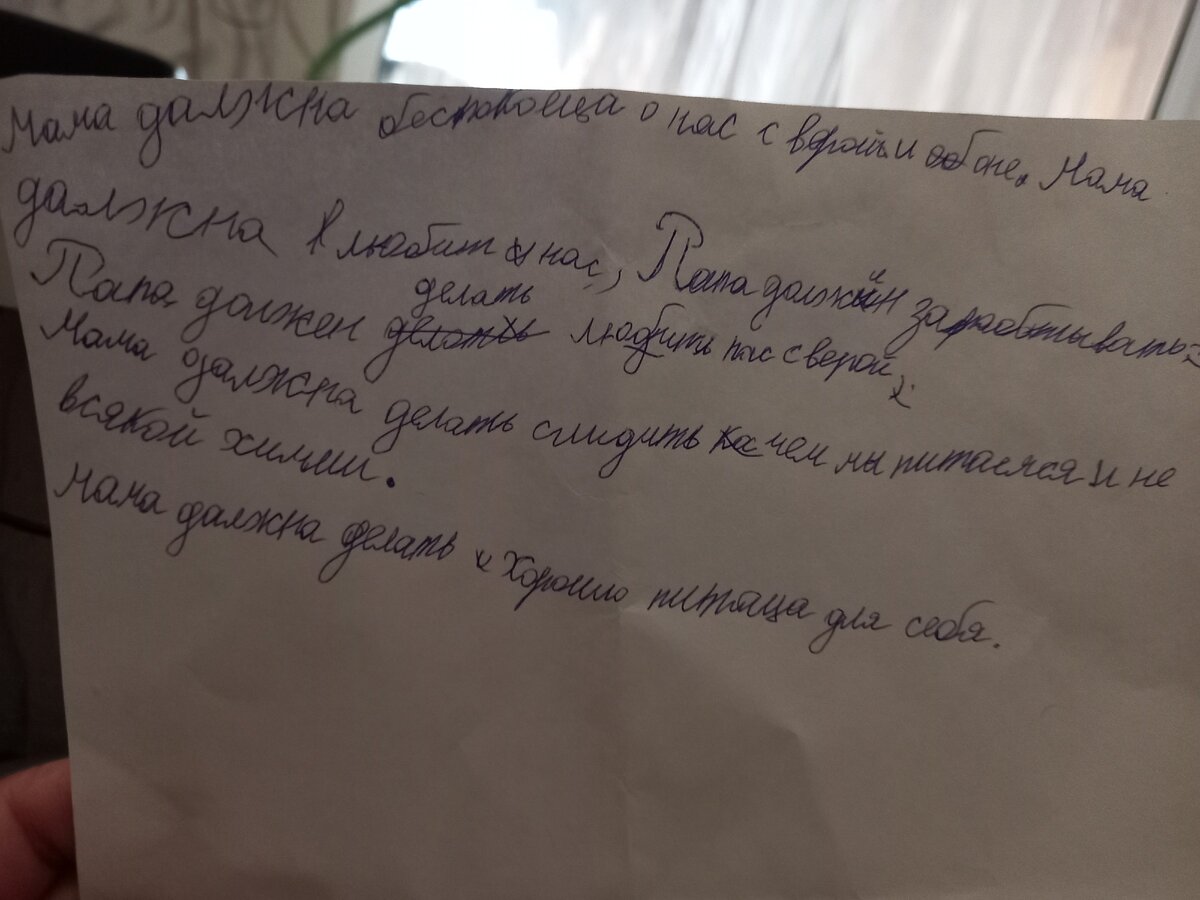 Мама должна обеспокоеца о нас с верой и обоне. Мама
должна любит нас, Папа должн зарабтывать
Папа должен делать любить нас с верой,
Мама должна делать слидить чем мы питаемся и не
всякой химии.
Мама должна делать хорошо питаца для себя.